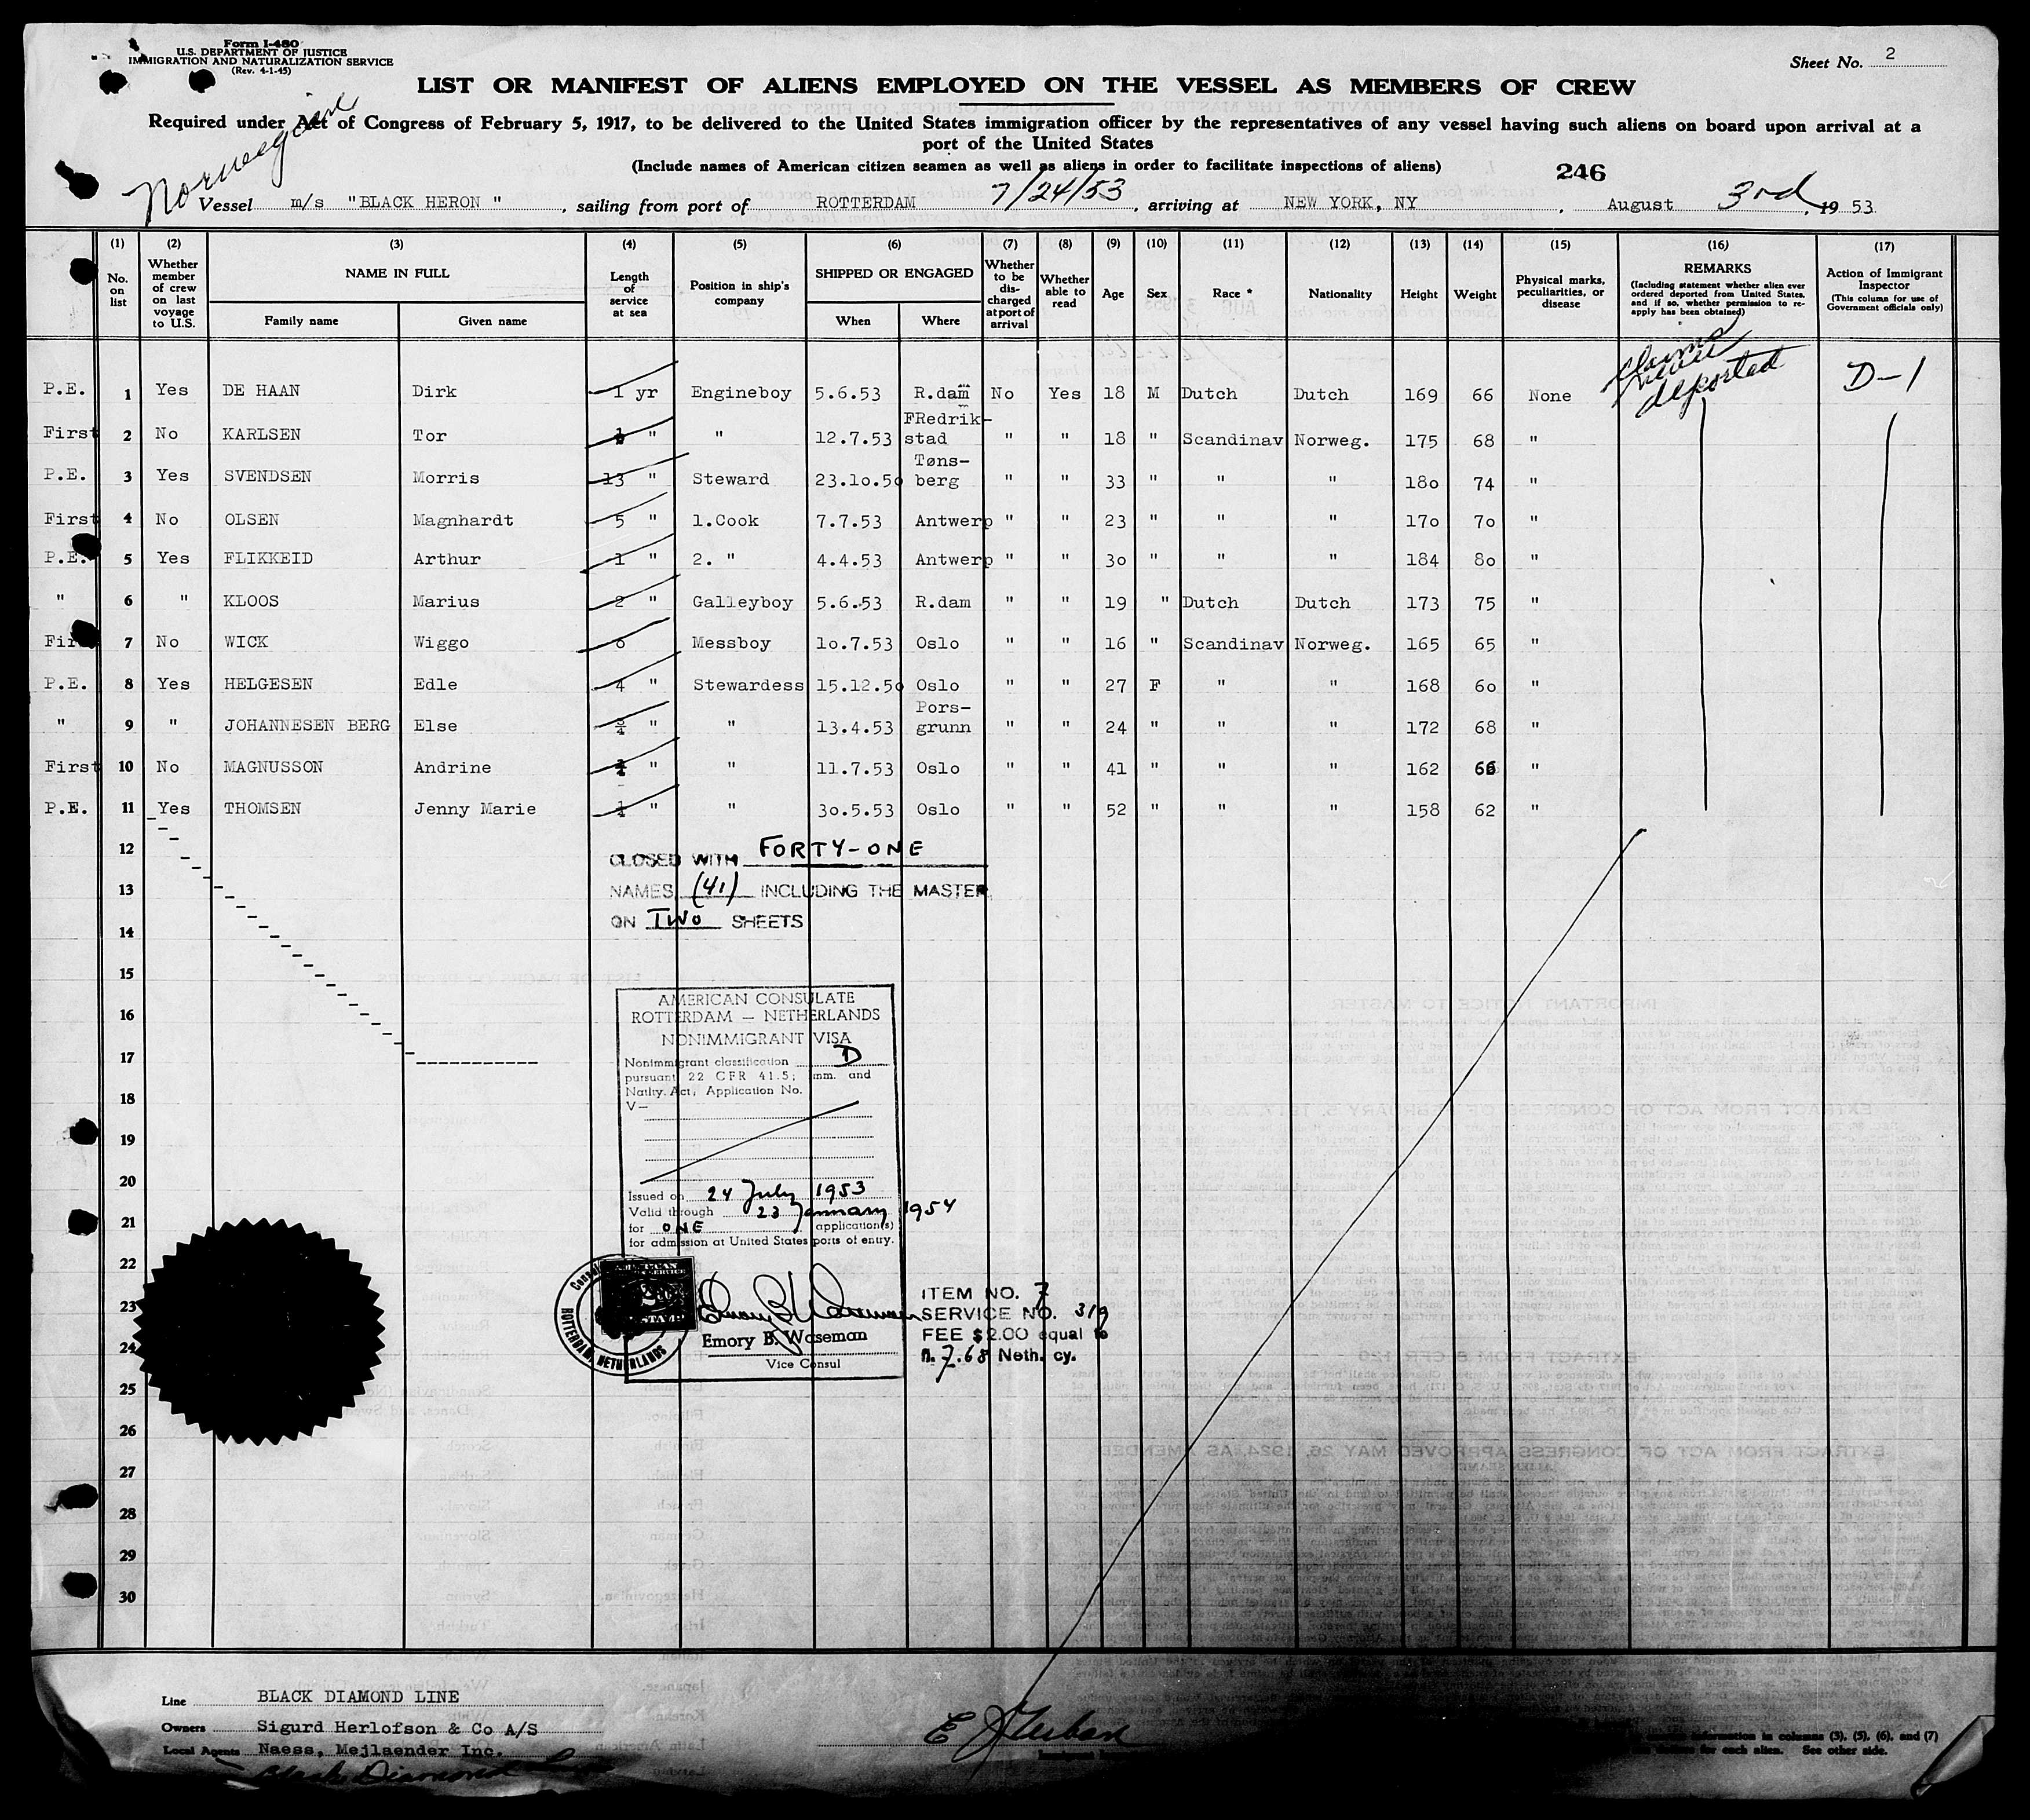 Form I-480
U.S. DEPARTMENT OF JUSTICE
IMMIGRATION AND NATURALIZATION SERVICE
(Rev. 4-1-45)
Sheet No. 2
LIST OR MANIFEST OF ALIENS EMPLOYED ON THE VESSEL AS MEMBERS OF CREW
Required under Act of Congress of February 5, 1917, to be delivered to the United States immigration officer by the representatives of any vessel having such aliens on board upon arrival at a
port of the United States
(Include names of American citizen seamen as well as aliens in order to facilitate inspections of aliens)
246
Norwegian
Vessel m/s "BLACK HERON ", sailing from port of ROTTERDAM 7/24/53, arriving at NEW YORK, NY, August 3rd, 19 53
(1) (2) (3) (4) (5) (6) (7) (8) (9) (10) (11) (12) (13) (14) (15) (16) (17)
No. on list
Whether member of crew on last voyage to U.S.
NAME IN FULL
Family name
Given name
Length of service at sea
Position in ship's company
SHIPPED OR ENGAGED
When
Where
Whether to be discharged at port of arrival
Whether able to read
Age
Sex
Race *
Nationality
Height
Weight
Physical marks, peculiarities, or disease
REMARKS
(Including statement whether alien ever ordered deported from United States, and if so, whether permission to re-apply has been obtained)
Action of Immigrant Inspector
(This column for use of Government officials only)
P.E. 1 Yes DE HAAN Dirk 1 yr Engineboy 5.6.53 R.dam No Yes 18 M Dutch Dutch 169 66 None never deported D-1
First 2 No KARLSEN Tor " " 12.7.53 FRedrik-stad " " 18 " Scandinav Norweg. 175 68 "
P.E. 3 Yes SVENDSEN Morris 13 " Steward 23.10.50 Tøns-berg " " 33 " " " 180 74 "
First 4 No OLSEN Magnhardt 5 " 1.Cook 7.7.53 Antwerp " " 23 " " " 170 70 "
P.E. 5 Yes FLIKKEID Arthur 1 " 2. " 4.4.53 Antwerp " " 30 " " " 184 80 "
" 6 " KLOOS Marius 2 " Galleyboy 5.6.53 R.dam " " 19 " Dutch Dutch 173 75 "
First 7 No WICK Wiggo 0 " Messboy 10.7.53 Oslo " " 16 " Scandinav Norweg. 165 65 "
P.E. 8 Yes HELGESEN Edle 4 " Stewardess 15.12.50 Oslo " " 27 F " " 168 60 "
" 9 " JOHANNESEN BERG Else 3/4 " " 13.4.53 Pors-grunn " " 24 " " " 172 68 "
First 10 No MAGNUSSON Andrine " " 11.7.53 Oslo " " 41 " " " 162 66 "
P.E. 11 Yes THOMSEN Jenny Marie 1/4 " " 30.5.53 Oslo " " 52 " " " 158 62 "
12
CLOSED WITH FORTY-ONE
13
NAMES (41) INCLUDING THE MASTER
ON TWO SHEETS
14
15
16
17
18
19
20
21
22
23
24
25
26
27
28
29
30
AMERICAN CONSULATE
ROTTERDAM — NETHERLANDS
NONIMMIGRANT VISA
Nonimmigrant classification D
pursuant 22 CFR 41.5; Imm. and
Natlty. Act, Application No.
V—
Issued on 24 July 1953
Valid through 23 January 1954
for ONE application(s)
for admission at United States ports of entry.
ROTTERDAM, NETHERLANDS
Emory B. Waseman
Emory B. Waseman
Vice Consul
ITEM NO. 7
SERVICE NO. 319
FEE $2.00 equal to
fl. 7.68 Neth. cy.
Line BLACK DIAMOND LINE
Owners Sigurd Herlofson & Co A/S
Local Agents Naess, Mejlaender Inc.
Black Diamond
information in columns (3), (5), (6), and (7)
for each alien. See other side.